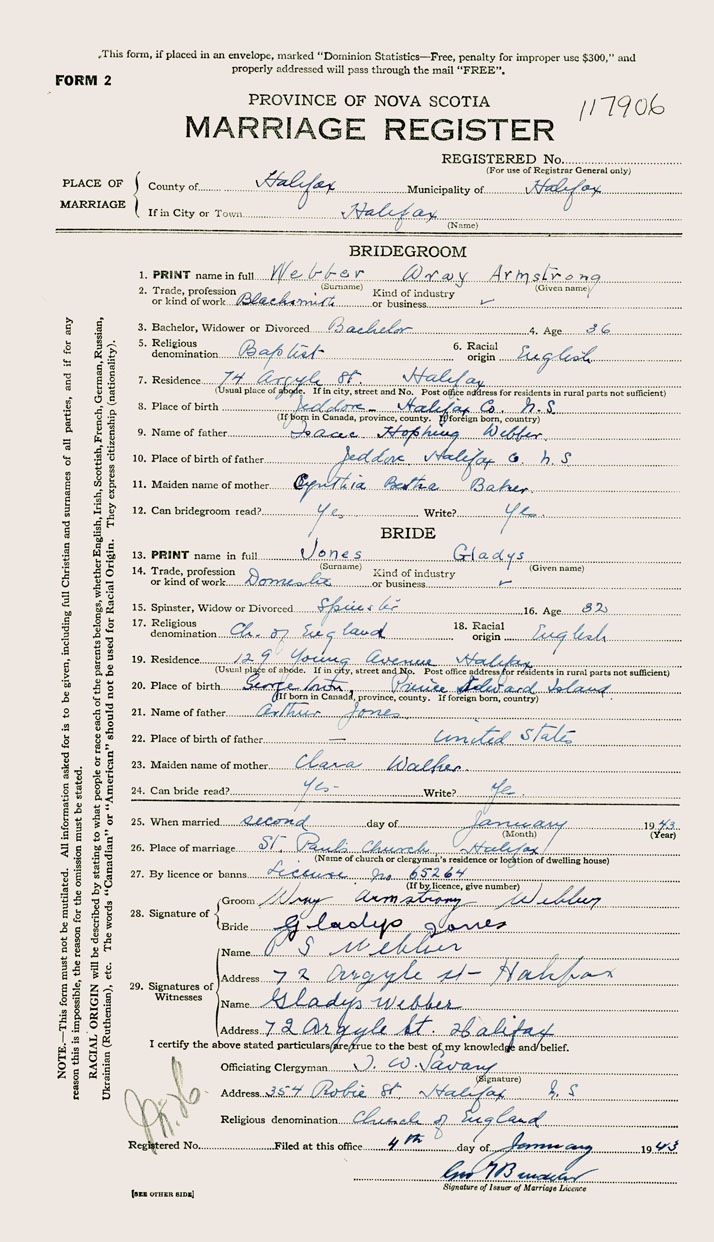 This form, if placed in an envelope, marked "Dominion Statistics—Free, penalty for improper use $300," and
properly addressed will pass through the mail "FREE".
FORM 2
PROVINCE OF NOVA SCOTIA
117906
MARRIAGE REGISTER
REGISTERED No.
(For use of Registrar General only)
PLACE OF MARRIAGE
County of Halifax Municipality of Halifax
If in City or Town Halifax
(Name)
BRIDEGROOM
1. PRINT name in full Webber Wray Armstrong
(Surname) (Given name)
2. Trade, profession or kind of work Blacksmith Kind of industry or business ✓
3. Bachelor, Widower or Divorced Bachelor 4. Age 36
5. Religious denomination Baptist 6. Racial origin English
7. Residence 74 Argyle St. Halifax
(Usual place of abode. If in city, street and No. Post office address for residents in rural parts not sufficient)
8. Place of birth Jeddore Halifax Co. N.S.
(If born in Canada, province, county. If foreign born, country)
9. Name of father Isaac Hopking Webber.
10. Place of birth of father Jeddore Halifax Co N S
11. Maiden name of mother Cynthia Bertha Baker.
12. Can bridegroom read? Yes Write? Yes.
BRIDE
13. PRINT name in full Jones Gladys
(Surname) (Given name)
14. Trade, profession or kind of work Domestic Kind of industry or business ✓
15. Spinster, Widow or Divorced Spinster 16. Age 32
17. Religious denomination Ch. of England 18. Racial origin English
19. Residence 129 Young Avenue Halifax
(Usual place of abode. If in city, street and No. Post office address for residents in rural parts not sufficient)
20. Place of birth Georgetown, Prince Edward Island.
(If born in Canada, province, county. If foreign born, country)
21. Name of father Arthur Jones.
22. Place of birth of father — United States
23. Maiden name of mother Clara Walker.
24. Can bride read? Yes- Write? Yes.
25. When married second day of January 1943
(Month) (Year)
26. Place of marriage St. Paul's Church, Halifax
(Name of church or clergyman's residence or location of dwelling house)
27. By licence or banns License No 65264
(If by licence, give number)
28. Signature of
Groom Wray Armstrong Webber
Bride Gladys Jones
29. Signatures of Witnesses
Name P S Webber
Address 72 Argyle st- Halifax
Name Gladys Webber
Address 72 Argyle St Halifax
I certify the above stated particulars are true to the best of my knowledge and belief.
Officiating Clergyman T. W. Savary
(Signature)
Address 354 Robie St. Halifax N.S
Religious denomination Church of England
Registered No. Filed at this office 4th day of January 1943
Signature of Issuer of Marriage Licence
[SEE OTHER SIDE]
NOTE.—This form must not be mutilated. All information asked for is to be given, including full Christian and surnames of all parties, and if for any
reason this is impossible, the reason for the omission must be stated.
RACIAL ORIGIN will be described by stating to what people or race each of the parents belongs, whether English, Irish, Scottish, French, German, Russian,
Ukrainian (Ruthenian), etc. The words "Canadian" or "American" should not be used for Racial Origin. They express citizenship (nationality).